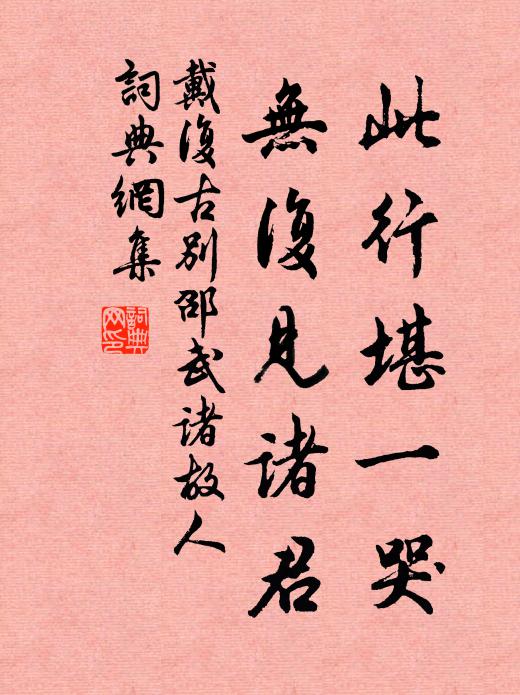 此行堪一哭
無復見諸君
戴復古别邵武诸故人
詞典網集
詞典網印